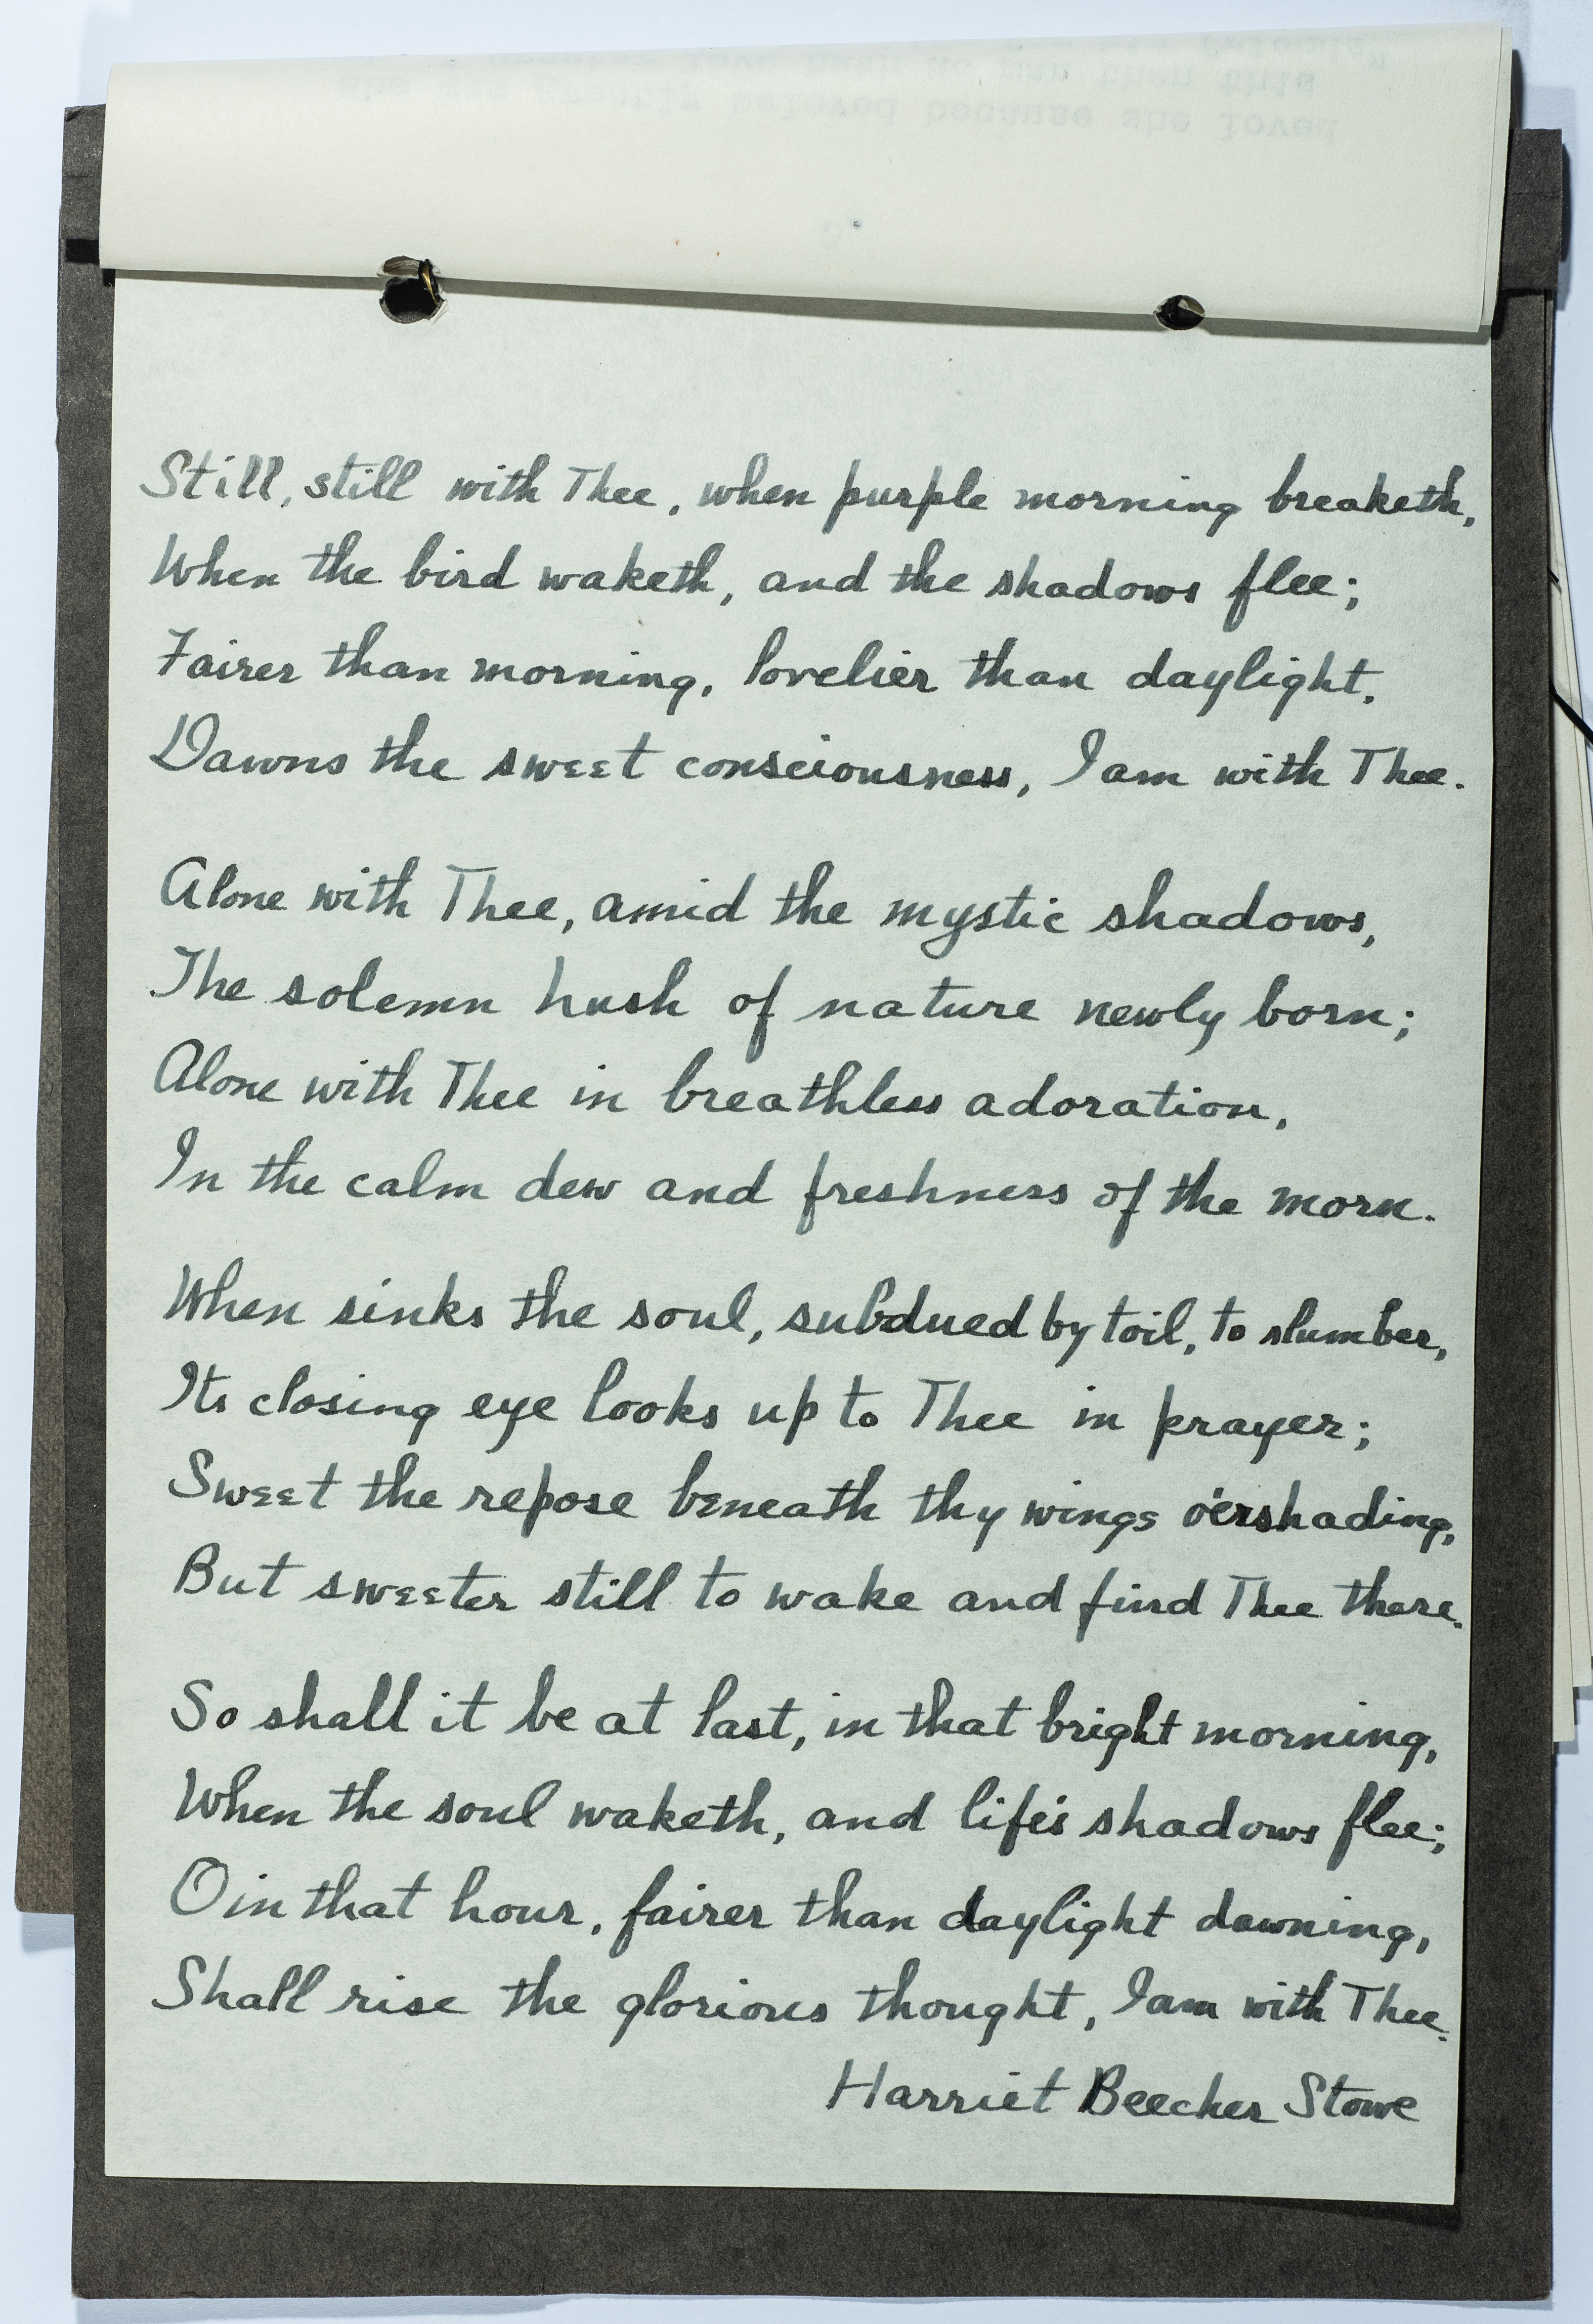 Still, still with Thee, when purple morning breaketh,
When the bird waketh, and the shadows flee;
Fairer than morning, lovelier than daylight,
Dawns the sweet consciousness, I am with Thee.
Alone with Thee, amid the mystic shadows,
The solemn hush of nature newly born;
Alone with Thee in breathless adoration,
In the calm dew and freshness of the morn.
When sinks the soul, subdued by toil, to slumber,
Its closing eye looks up to Thee in prayer;
Sweet the repose beneath thy wings o'ershading,
But sweeter still to wake and find Thee there.
So shall it be at last, in that bright morning,
When the soul waketh, and life's shadows flee;
O in that hour, fairer than daylight dawning,
Shall rise the glorious thought, I am with Thee.
Harriet Beecher Stowe